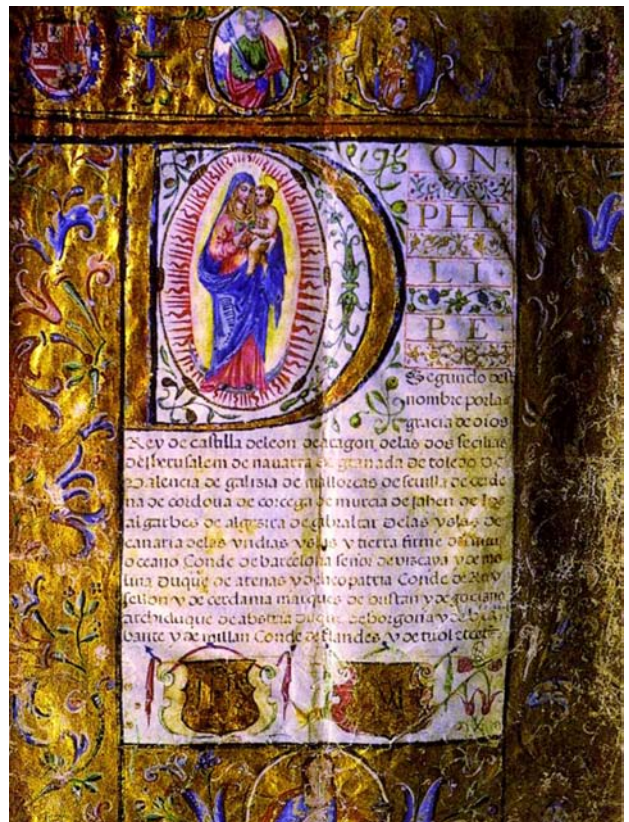 DON
PHE
LI
PE
Segundo deste
nombre por la
gracia de dios
Rey de castilla deleon de aragon delas dos secilias
de Iherusalem de navarra de granada de toledo de
valencia de galizia de mallorcas de sevilla de cerde
na de cordova de corcega de murcia de jahen de los
algarbes de algezira de gibraltar delas yslas de
canaria delas yndias yslas y tierra firme del mar
oceano Conde de barcelona señor de vizcaya y de mo
lina Duque de atenas y de neopatria Conde de Ruy
sellon y de cerdania marques de oristan y de gociano
archiduque de abstria Duque de borgoña y de bra
bante y de millan Conde de flandes y de tirol etcet